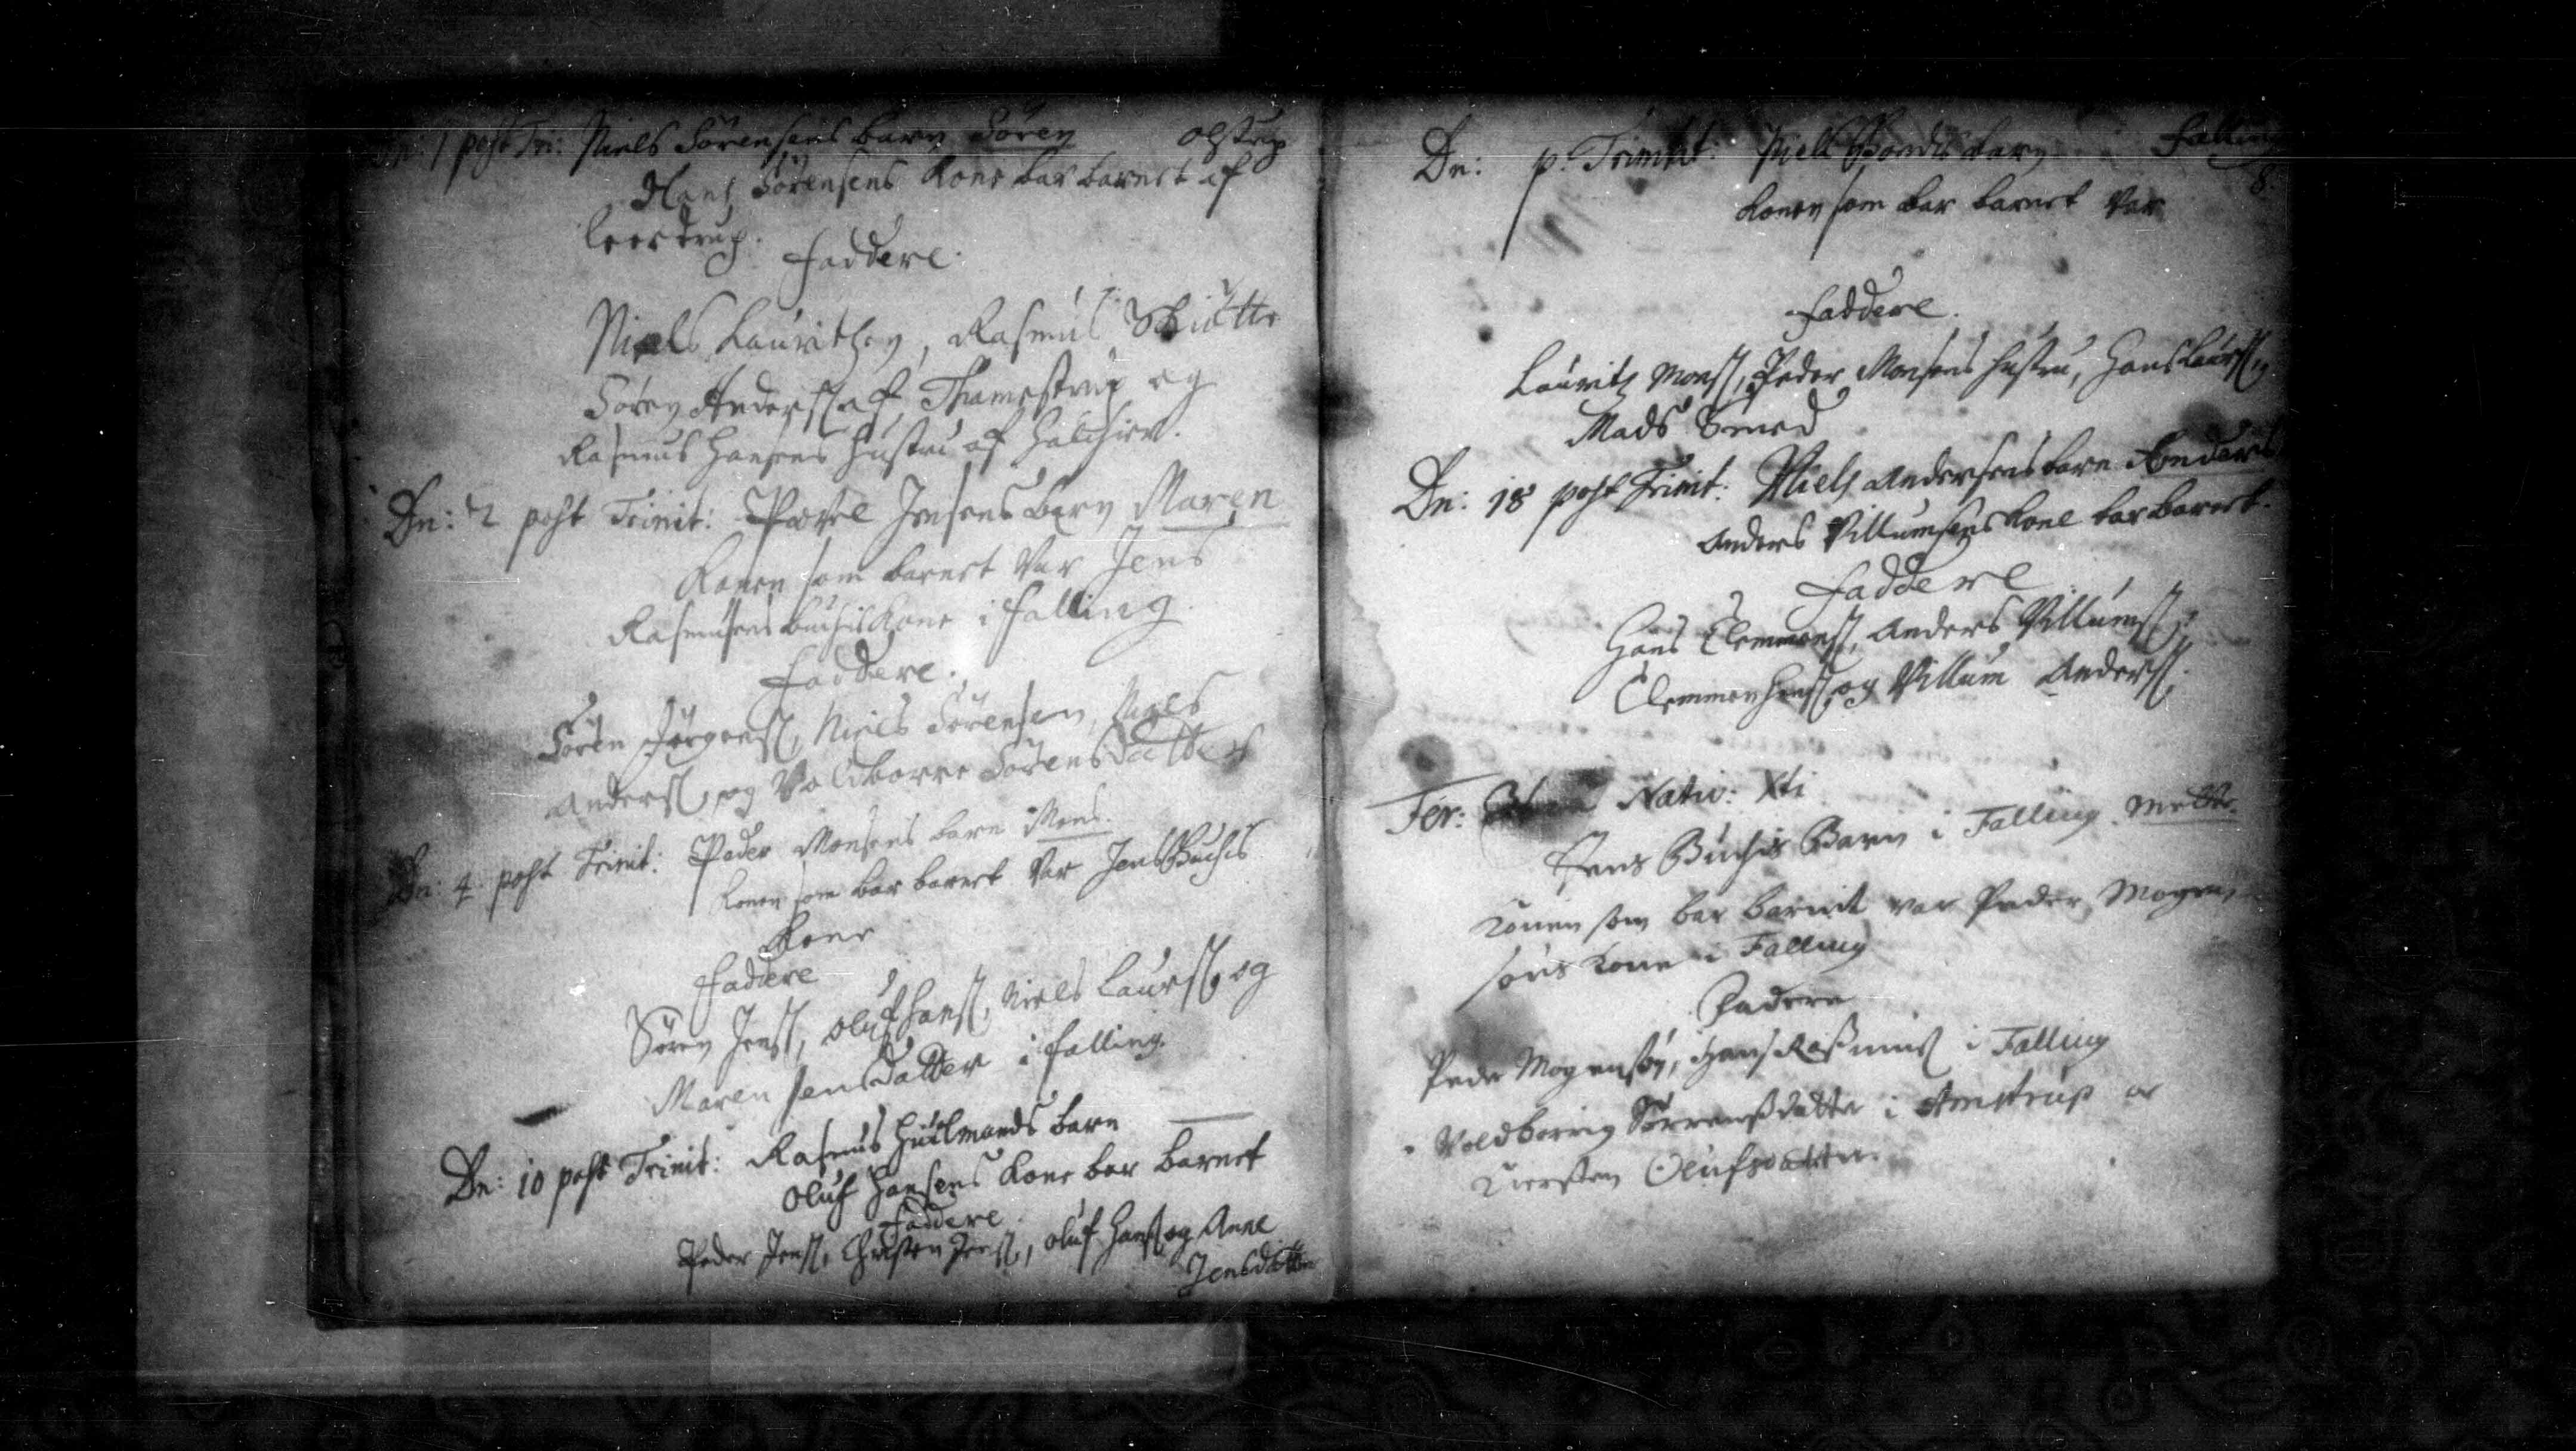 Dn: 1 post Tri: Niels Sörensens barn Sören Olstrup
Hans Sörensens Kone bar barnet af
Leerdrup.
Faddere.
Niels Lauritzen, Rasmus Skiötte
Sören Anderss: af Thamestrup og
Rasmus Hansens hustru af
Dn: 2 post Trinit: Povel Jensens barn Maren
Konen som barnet var Jens
Rasmusens Buchis Kone i Falling.
Faddere.
Sören Jörgenss, Niels Sörensen, Niels
Anderss, og Voldborre Sörensdatter
Dn: 4 post Trinit: Peder Monsens barn Mons.
Konen som bar barnet var Jens Buchis
Kone
Faddere
Sören Jenss, Oluf Hanss, Niels Laurss og
Maren Jensdatter i Falling.
Dn: 10 post Trinit: Rasmus Huulmands barn
Oluf Hansens Kone bar barnet
Faddere
Peder Jenss, Christen Jenss, Oluf Hanss og Anne
Jensdatter
Dn: p. Trinit: Niels barn i Falling
8.
Konen som bar barnet var
Faddere.
Lauritz Monss, Peder Monsens hustru, Hans Laurss,
Mads Smed
Dn: 18 post Trinit: Niels Andersens barn Anders
Anders Villumsens Kone bar barnet.
Faddere
Hans Clemmenss, Anders Villumss,
Clemmen Hanss og Villum Anderss.
Fer: Nativ: Xti
Jens Buchis Barn i Falling Mette.
Konen som bar barnit var Peder Mogen
sens Kone i Falling
Fadere
Peder Mogensön, Hans Rasmus i Falling
Voldborrig Sörrensdatter i Amstrup oc
Kiersten Olufsdatter.